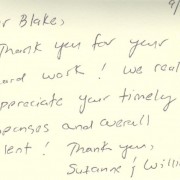 r Blake,
Thank you for your
ard work! we real
preciate your timely
ponses and overall
lent! Thank you,
Suzanne & Willi